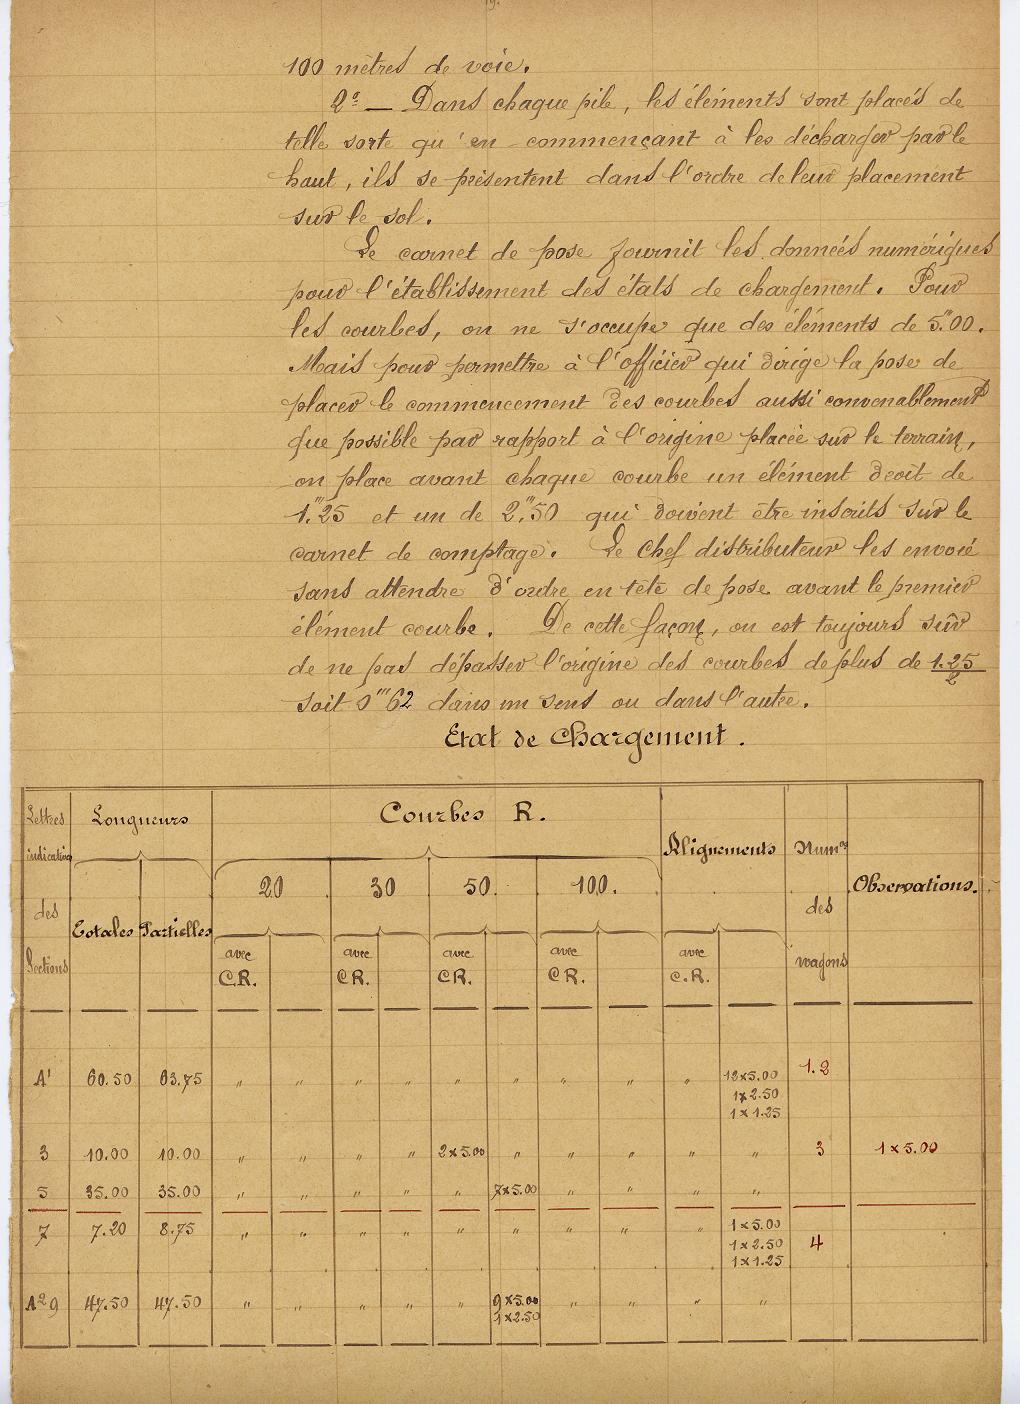 19.
100 mètres de voie.
2º — Dans chaque pile, les éléments sont placés de
telle sorte qu'en commençant à les décharger par le
haut, ils se présentent dans l'ordre de leur placement
sur le sol.
Le carnet de pose fournit les données numériques
pour l'établissement des états de chargement. Pour
les courbes, on ne s'occupe que des éléments de 5.m00.
Mais pour permettre à l'officier qui dirige la pose de
placer le commencement des courbes aussi convenablement
que possible par rapport à l'origine placée sur le terrain,
on place avant chaque courbe un élément droit de
1.m25 et un de 2.m50 qui doivent être inscrits sur le
carnet de comptage. Le chef distributeur les envoie
sans attendre d'ordre en tête de pose avant le premier
élément courbe. De cette façon, on est toujours sûr
de ne pas dépasser l'origine des courbes de plus de 1.25/2
soit 0m62 dans un sens ou dans l'autre.
Etat de Chargement.
Lettres indicatives des Sections
Longueurs
Totales Partielles
Courbes R.
20 30 50. 100.
Alignements
Numos des wagons
Observations.
avec C.R. avec C.R. avec C.R. avec C.R. avec C.R.
A1 60.50 63.75 " " " " " " " " " 12x5.00 1.2
1x2.50
1x1.25
3 10.00 10.00 " " " " 2x5.00 " " " " " 3 1x5.00
5 35.00 35.00 " " " " " 7x5.00 " " " "
7 7.20 8.75 " " " " " " " " " 1x5.00
1x2.50 4
1x1.25
A2 9 47.50 47.50 " " " " " 9x5.00 " " " "
1x2.50